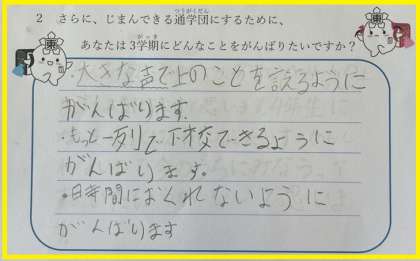 2 さらに、じまんできる通学団にするために、
つうがくだん
あなたは3学期にどんなことをがんばりたいですか?
がっき
・大きな声で上のことを言えるように
がんばります。
・もっと一列で下校できるように
がんばります。
・時間におくれないように
がんばります